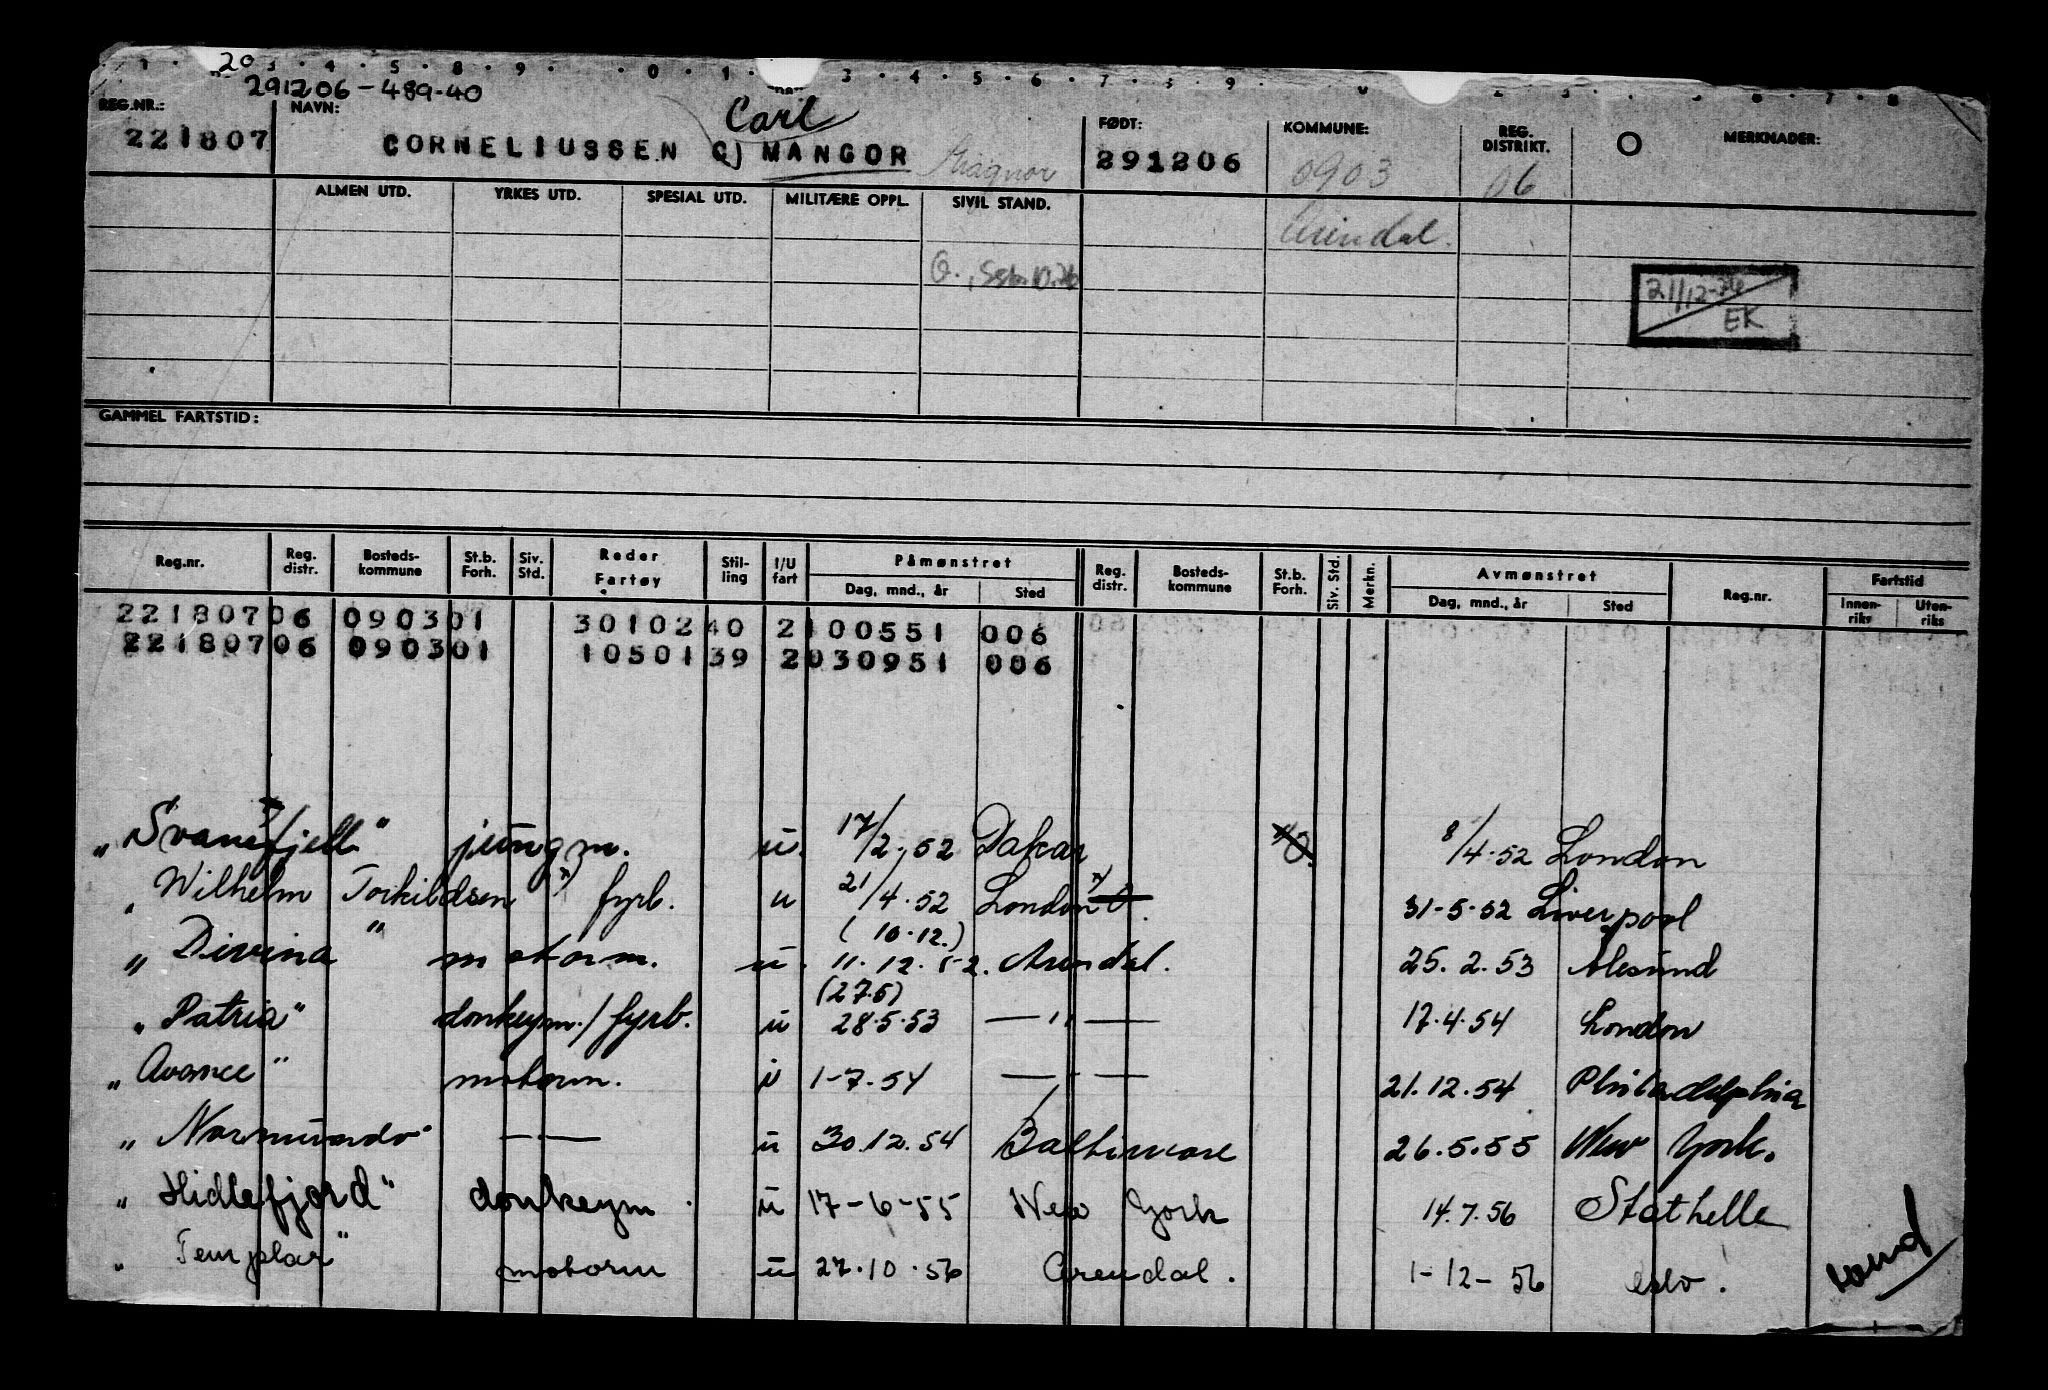 20
291206-489-40
REG.NR.: NAVN: Carl FØDT: KOMMUNE: REG. DISTRIKT. MERKNADER:
221807 CORNELIUSSEN C) MANGOR Magnor 291206 0903 06
ALMEN UTD. YRKES UTD. SPESIAL UTD. MILITÆRE OPPL. SIVIL STAND. Arendal.
G.
21/12-76
EK
GAMMEL FARTSTID:
Reg.nr. Reg. distr. Bosteds-kommune St.b. Forh. Siv. Std. Reder Fartøy Stil-ling I/U fart Påmønstret Reg. distr. Bosteds-kommune St.b. Forh. Siv. Std. Merkn. Avmønstret Reg.nr. Fartstid
Dag, mnd., år Sted Dag, mnd., år Sted Innen-riks Uten-riks
221807 06 0903 01 301024 0 2 100551 006
221807 06 0903 01 105013 9 2 030951 006
"Svanefjell" jungm. u. 17/2-52 Dakar 8/4-52 London
"Wilhelm Torkildsen" x) fyrb. u 21/4-52 London x) 31-5-52 Liverpool
(10.12.)
"Divina motorm. u. 11.12.52. Arendal. 25.2.53 Ålesund
(27.5)
"Patria" donkeym./fyrb. u 28.5.53 —"— 17.4.54 London
"Avance" motorm. u 1-7.54 —"— 21.12.54 Philadelphia
"Normundo" —"— u 30.12.54 Baltimore 26.5.55 New York.
"Hidlefjord" donkeym. u 17-6-55 New York 14.7.56 Stathelle
"Templar" motorm u 27.10.56 Arendal. 1-12-56 Oslo.
vend